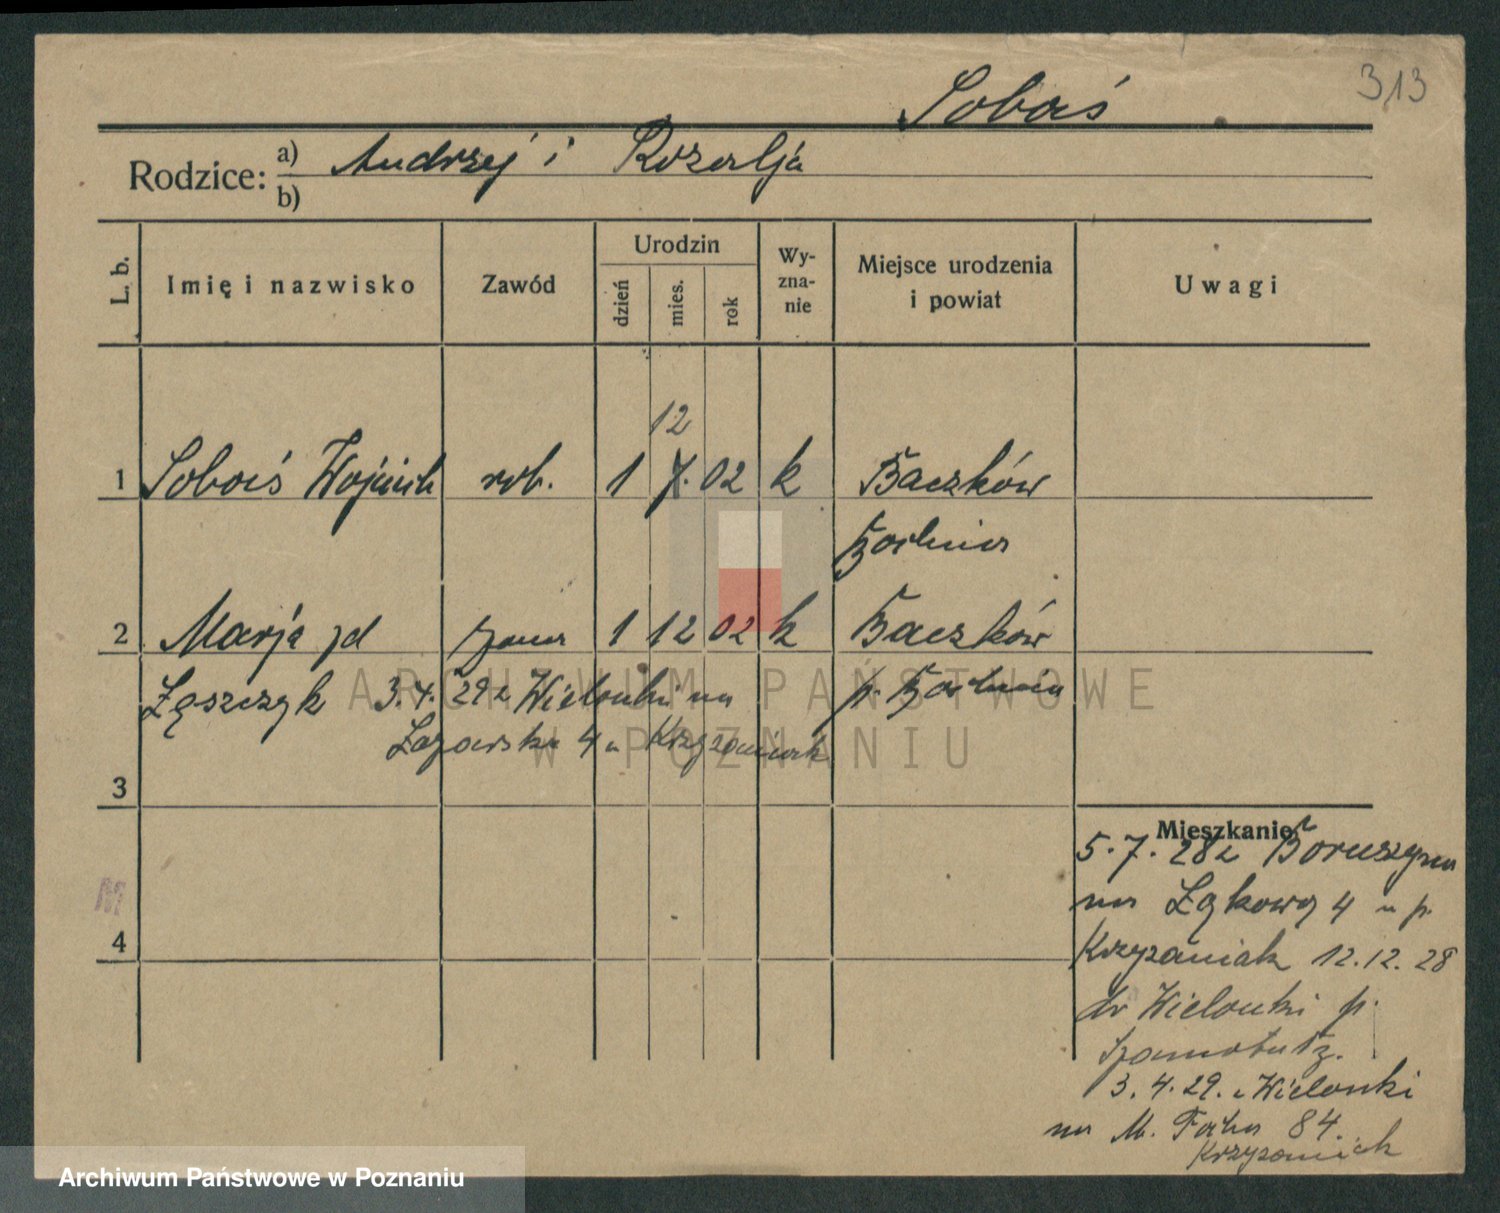 313
Soboś
Rodzice: a) Andrzej i Rozalja
b)
L. b. Imię i nazwisko Zawód Urodzin dzień mies. rok Wy-zna-nie Miejsce urodzenia i powiat Uwagi
12
1 Soboś Wojciech rob. 1 7. 02 k Baczków
Bochnia
2 Marja zd żona 1 12 02 k Baczków
Łąszczyk 3.4.29 z Wielonki na p. Bochnia
Łazarska 4 u Krzyzaniak
3
Mieszkanie
5.7.28 z Boruszyna
na Łąkową 4 u p.
M
4
Krzyzaniak 12.12.28
do Wielonki p.
Szamotuł
3.4.29. z Wielonki
na M. Focha 84.
Krzyzaniak
ARCHIWUM PAŃSTWOWE
W POZNANIU
Archiwum Państwowe w Poznaniu